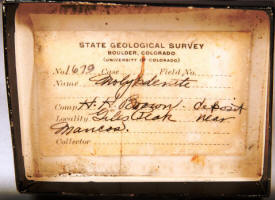 STATE GEOLOGICAL SURVEY
BOULDER, COLORADO
(UNIVERSITY OF COLORADO)
No. 1679 Case Field No.
Name Molybdenite
Comp. H. H. deposit
Locality Giles Peak near
Mancos.
Collector